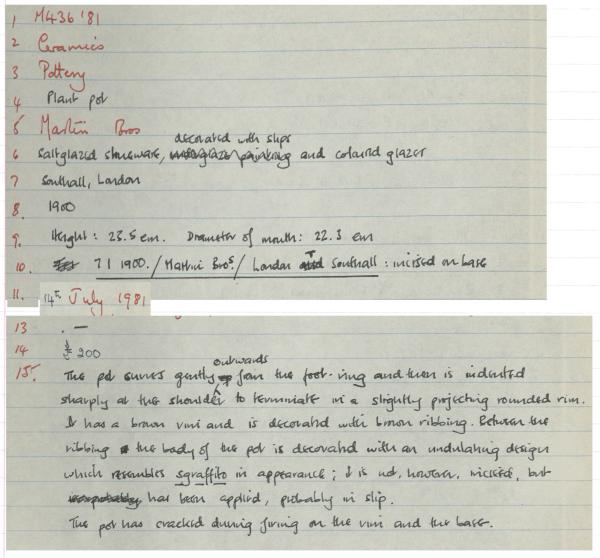 1 M436 '81
2 Ceramics
3 Pottery
4 Plant pot
5 Martin Bros
decorated with slips
6 Saltglazed stoneware, underglaze painting and coloured glazes
7 Southall, London
8. 1900
9. Height: 28.5 cm. Diameter of mouth: 22.3 cm
10. 7 1 1900./Martin Bros/London and Southall: incised on base
11. 14th July 1981
13 . —
14 £ 200
15. The pot curves gently outwards from the foot-ring and then is indented
sharply at the shoulder to terminate in a slightly projecting rounded rim.
It has a brown rim and is decorated with brown ribbing. Between the
ribbing the body of the pot is decorated with an undulating design
which resembles sgraffito in appearance; it is not, however, incised, but
has been applied, probably in slip.
The pot has cracked during firing on the rim and the base.